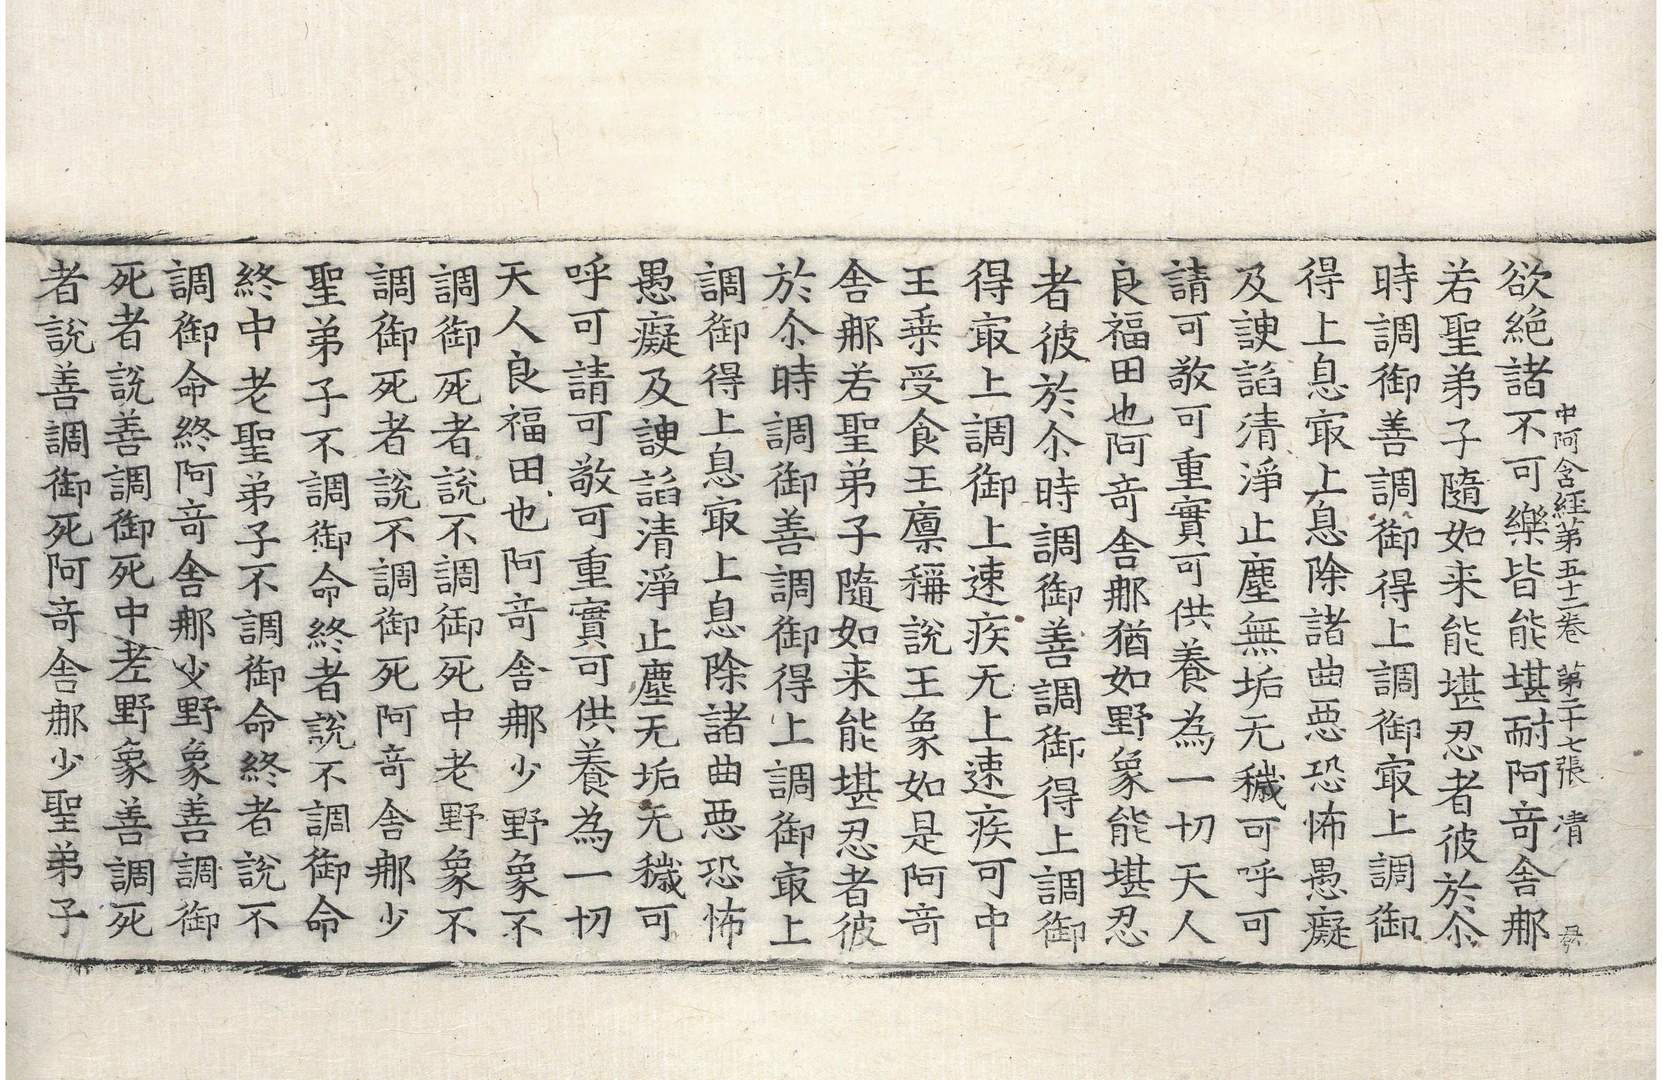 中阿含經第五十二卷 第二十七張 凊
欲絶諸不可樂皆能堪耐阿竒舍𨙻
若聖弟子隨如来能堪忍者彼於尒
時調御善調御得上調御㝡上調御
得上息㝡上息除諸曲恶恐怖愚癡
及諛諂清淨止塵無垢无穢可呼可
請可敬可重實可供養為一切天人
良福田也阿竒舍𨙻猶如野象能堪忍
者彼於尒時調御善調御得上調御
得㝡上調御上速疾无上速疾可中
王乗受食王廪稱說王象如是阿竒
舍𨙻若聖弟子隨如来能堪忍者彼
於尒時調御善調御得上調御㝡上
調御得上息㝡上息除諸曲恶恐怖
愚癡及諛諂清淨止塵无垢无穢可
呼可請可敬可重實可供養為一切
天人良福田也阿竒舍𨙻少野象不
調御死者說不調御死中老野象不
調御死者說不調御死阿竒舍𨙻少
聖弟子不調御命終者說不調御命
終中老聖弟子不調御命終者說不
調御命終阿竒舍𨙻少野象善調御
死者說善調御死中老野象善調死
者說善調御死阿竒舍𨙻少聖弟子